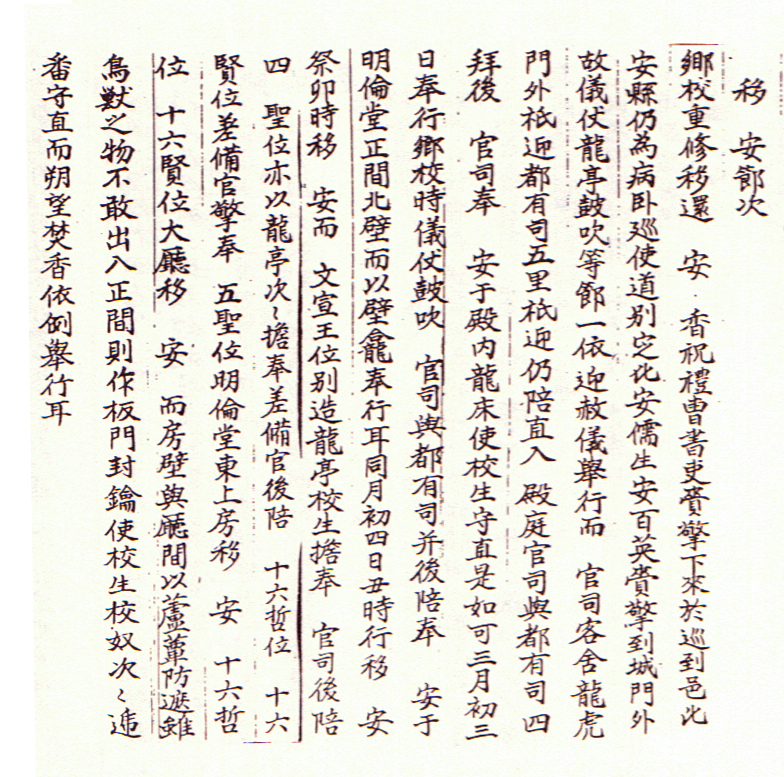 移 安節次
鄉校重修移還 安 香祝禮曹書吏賫擎下來於巡到邑此
安縣仍為病臥廵使道別定此安儒生安百英賫擎到城門外
故儀仗龍亭鼓吹等節一依迎赦儀舉行而 官司客舍龍虎
門外祗迎都有司五里祗迎仍陪直入 殿庭官司與都有司四
拜後 官司奉 安于殿內龍床使校生守直是如可三月初三
日奉行鄉校時儀仗鼓吹 官司與都有司并後陪奉 安于
明倫堂正間北壁而以壁龕奉行耳同月初四日丑時行移 安
祭卯時移 安而 文宣王位別造龍亭校生擔奉 官司後陪
四 聖位亦以龍亭次〻擔奉差備官後陪 十六哲位 十六
賢位差備官擎奉 五聖位明倫堂東上房移 安 十六哲
位 十六賢位大廳移 安 而房壁與廳間以蘆簟防遮雖
鳥獸之物不敢出入正間則作板門封鑰使校生校奴次〻遆
番守直而朔望焚香依例舉行耳